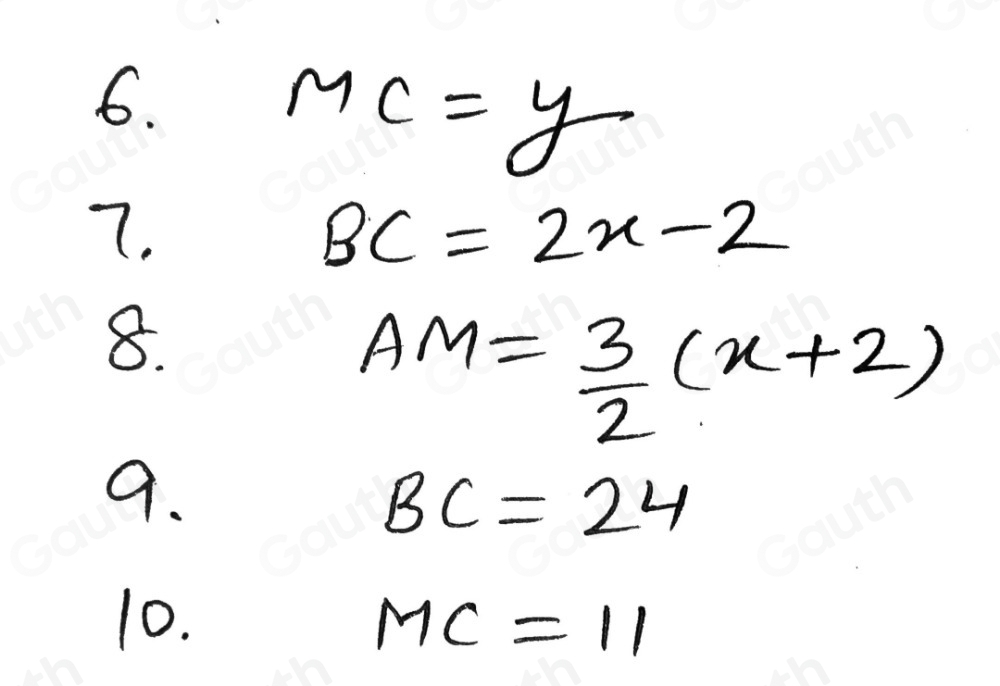 6. MC = y
7. BC = 2x - 2
8. AM = 3/2 (x + 2)
9. BC = 24
10. MC = 11